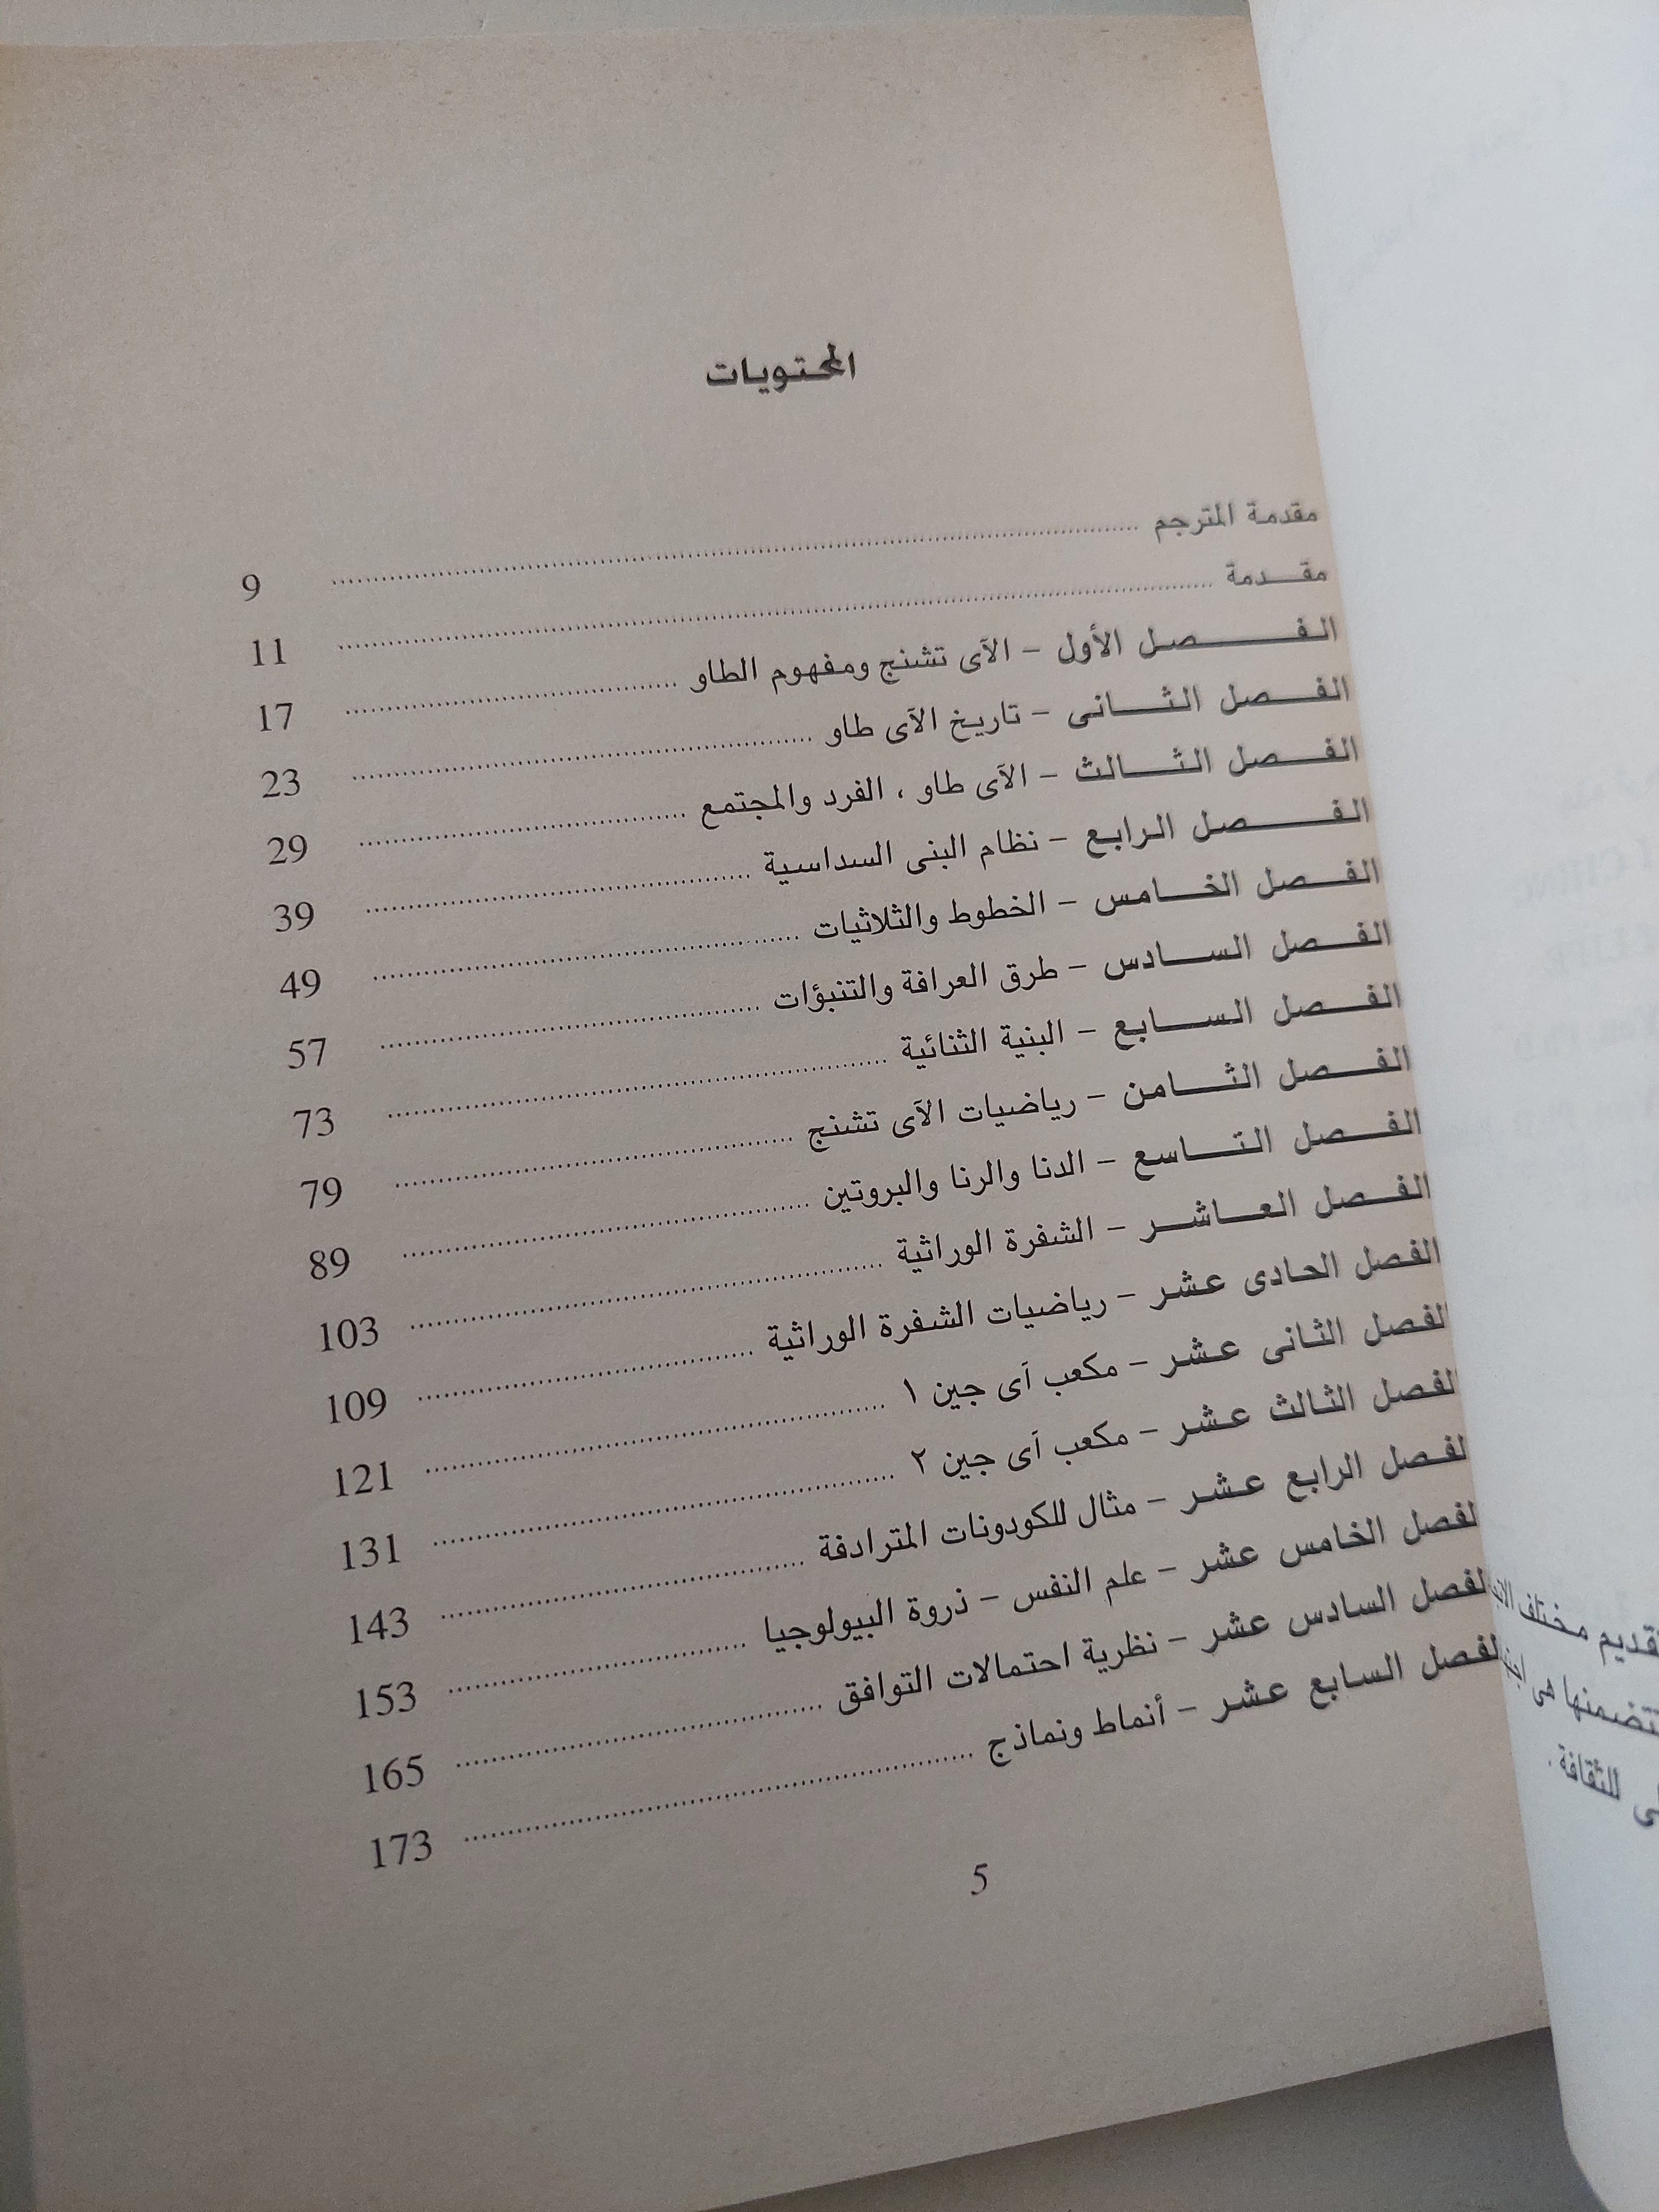 المحتويات
مقدمة المترجم ........ 9
مقدمة ........ 11
الفصل الأول – الآى تشنج ومفهوم الطاو ........ 17
الفصل الثانى – تاريخ الآى طاو ........ 23
الفصل الثالث – الآى طاو ، الفرد والمجتمع ........ 29
الفصل الرابع – نظام البنى السداسية ........ 39
الفصل الخامس – الخطوط والثلاثيات ........ 49
الفصل السادس – طرق العرافة والتنبؤات ........ 57
الفصل السابع – البنية الثنائية ........ 73
الفصل الثامن – رياضيات الآى تشنج ........ 79
الفصل التاسع – الدنا والرنا والبروتين ........ 89
الفصل العاشر – الشفرة الوراثية ........ 103
الفصل الحادى عشر – رياضيات الشفرة الوراثية ........ 109
الفصل الثانى عشر – مكعب آى جين ١ ........ 121
الفصل الثالث عشر – مكعب آى جين ٢ ........ 131
لفصل الرابع عشر – مثال للكودونات المترادفة ........ 143
لفصل الخامس عشر – علم النفس – ذروة البيولوجيا ........ 153
لفصل السادس عشر – نظرية احتمالات التوافق ........ 165
لفصل السابع عشر – أنماط ونماذج ........ 173
5
قديم مختلف
تتضمنها هى
للثقافة .